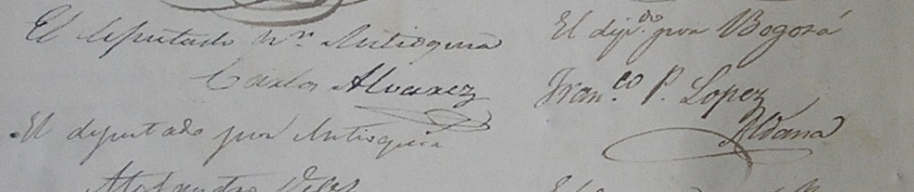 El diputado pr. Antioquia
Carlos Alvarez
El diputado por Antioquia
Alejandro Velez
El dip.do por Bogotá
Fran.co P. Lopez
Aldana